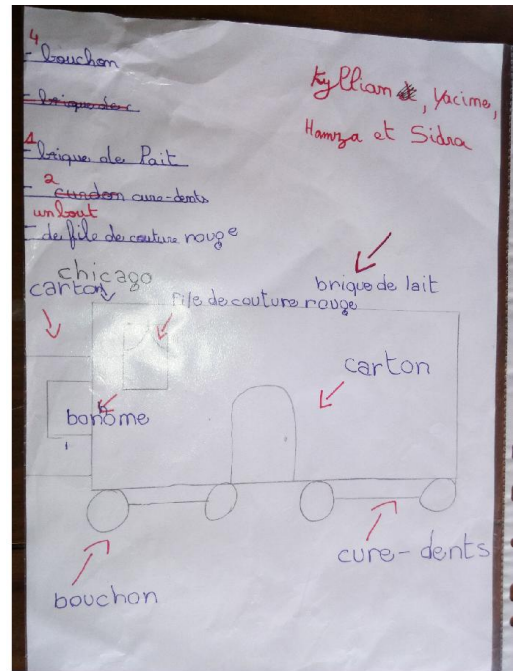 4
- bouchon
- brique de c
1
- brique de lait
2
- curdon cure-dents
un bout
- de file de couture rouge
Kyllian, Yacime,
Hamza et Sidra
chicago
carton
file de couture rouge
brique de lait
carton
bonome
cure-dents
bouchon